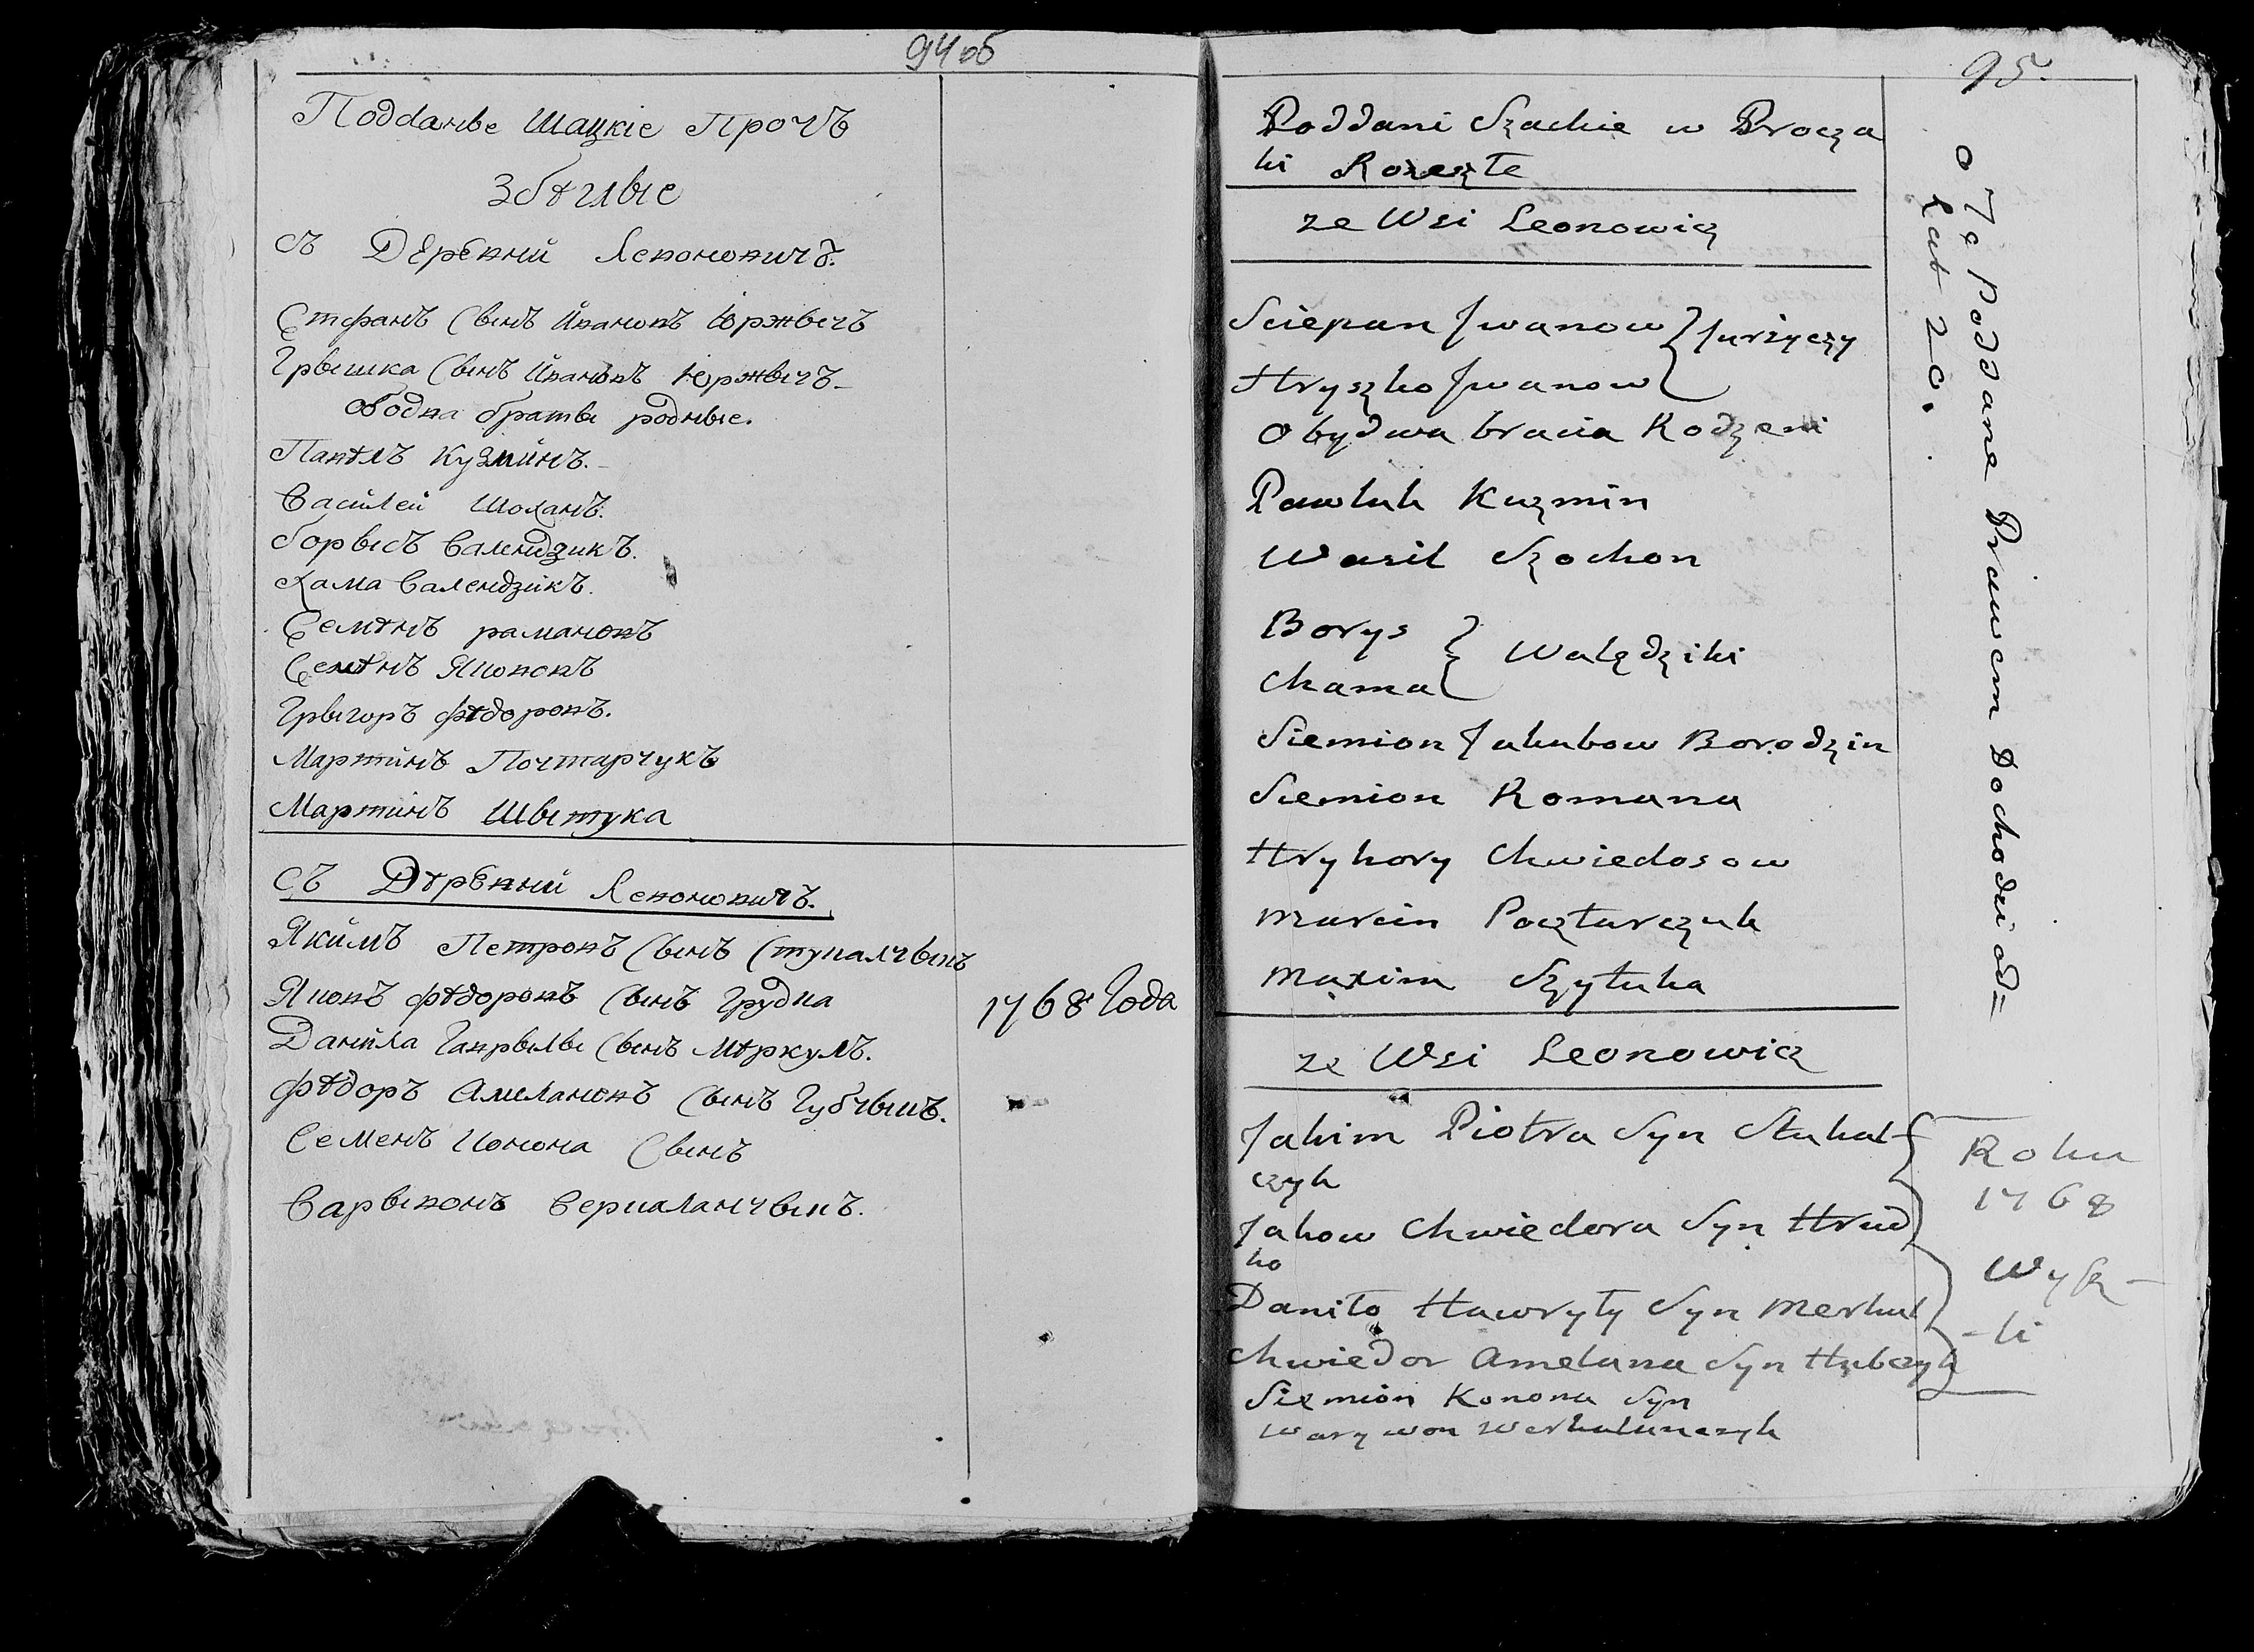 94 об
Подданые Шацкіе Прочъ
Збѣглые
съ Деревний Леконовичъ.
Стефанъ Сынъ Ивановъ Юржычъ
Грышка Сынъ Ивановъ Юржычъ
Ободва браты родные.
Павѣлъ Кузминъ.
Василей Шоханъ.
борысъ Валендзикъ.
Хама Валендзикъ.
Семѣнъ рамановъ
Семѣнъ
Грыгоръ фѣдоровъ.
Мартинъ Почтарчукъ
Мартинъ Шытука
съ Дѣревний
Якимъ Петровъ Сынъ
фѣдоровъ Сынъ
Данила Гаврылы Сынъ Мѣркулъ.
фѣдоръ Амелановъ Сынъ
Семенъ Сынъ
1768 Года
95.
Poddani Szackie w Procza
ki
ze Wsi Leonowicz
Sciepan Jwanow } Jurżyczy
Hryszko Jwanow
Obydwa bracia Rodzeni
Pawluk Kuzmin
Wasil Szochon
Borys } Walędziki
Chama
Siemion Jakubow Borodzin
Siemion Romana
Hryhory Chwiedosow
Marcin Pocztarczuk
Maxim Szytuka
ze Wsi Leonowicz
Jakim Piotra Syn Stukal-
czyk
Jakow Chwiedora Syn Hrud
ko
Daniło Hawryły Syn Merkul
Chwiedor Amelana Syn Hubczyk
Siemion Konona Syn
Warywon Werkalanczyk
o Te Poddane Prawem Dochodzi od=
Lat 20.
Roku
1768
Wysz-
-li